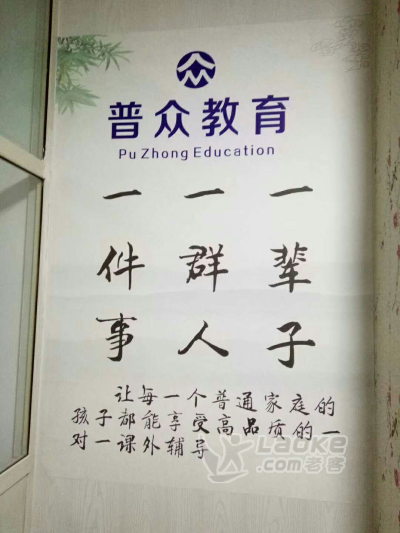 普众教育
Pu Zhong Education
一辈子
一群人
一件事
让每一个普通家庭的
孩子都能享受高品质的一
对一课外辅导
Laoke
.com老客